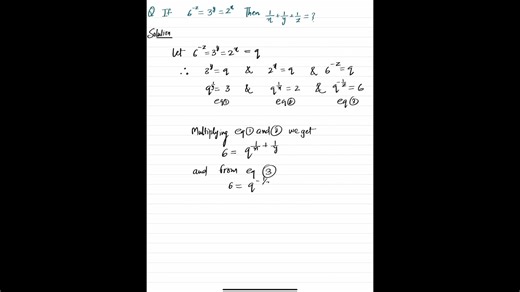 Q If 6^{-z} = 3^y = 2^x Then 1/x + 1/y + 1/z = ?
Solution
Let 6^{-z} = 3^y = 2^x = q
∴ 3^y = q & 2^x = q & 6^{-z} = q
q^{1/y} = 3 & q^{1/x} = 2 & q^{-1/z} = 6
eq① eq② eq③
Multiplying eq① and② we get
6 = q^{1/x + 1/y}
and from eq ③
6 = q^{-1/z}